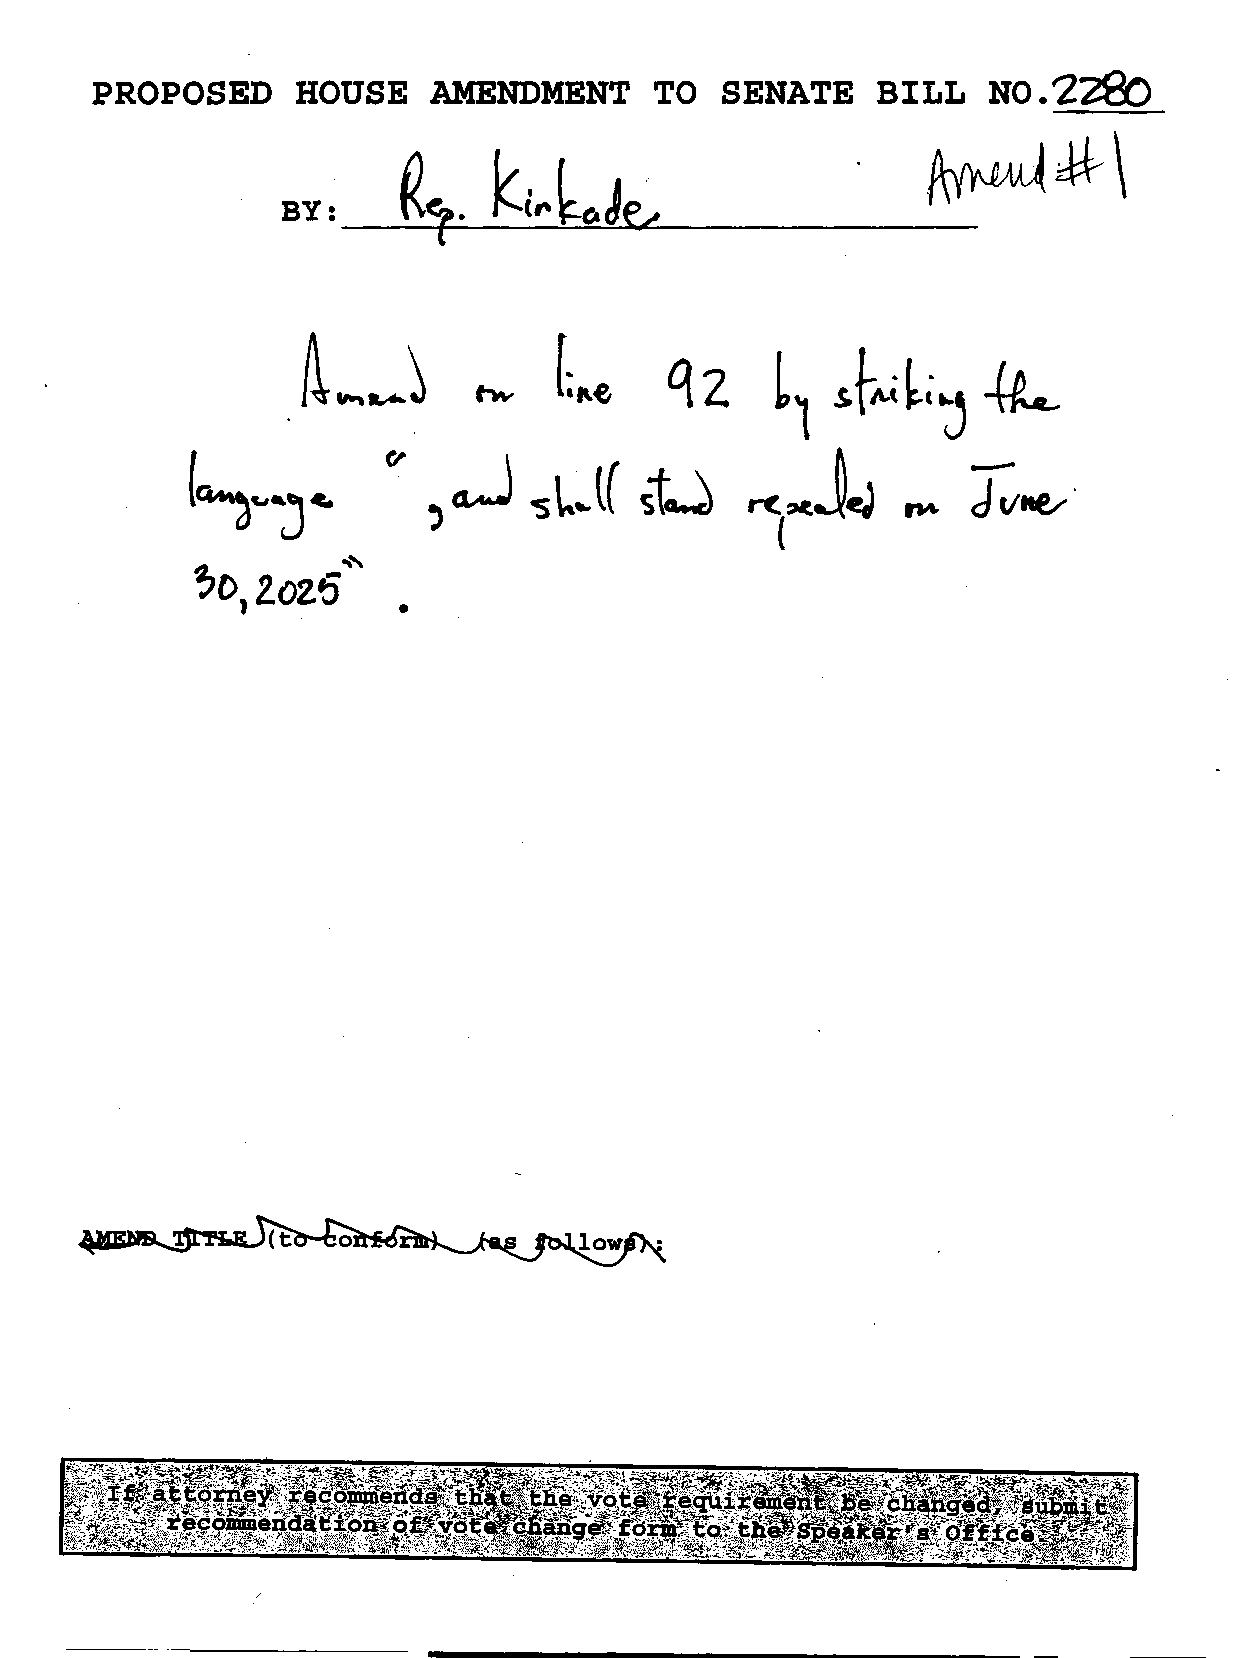 PROPOSED HOUSE AMENDMENT TO SENATE BILL NO. 2280
Amend #1
BY: Rep. Kinkade
Amend on line 92 by striking the
language “, and shall stand repealed on June
30, 2025” .
AMEND TITLE (to conform) (as follows):
If attorney recommends that the vote requirement be changed, submit
recommendation of vote change form to the Speaker's Office.